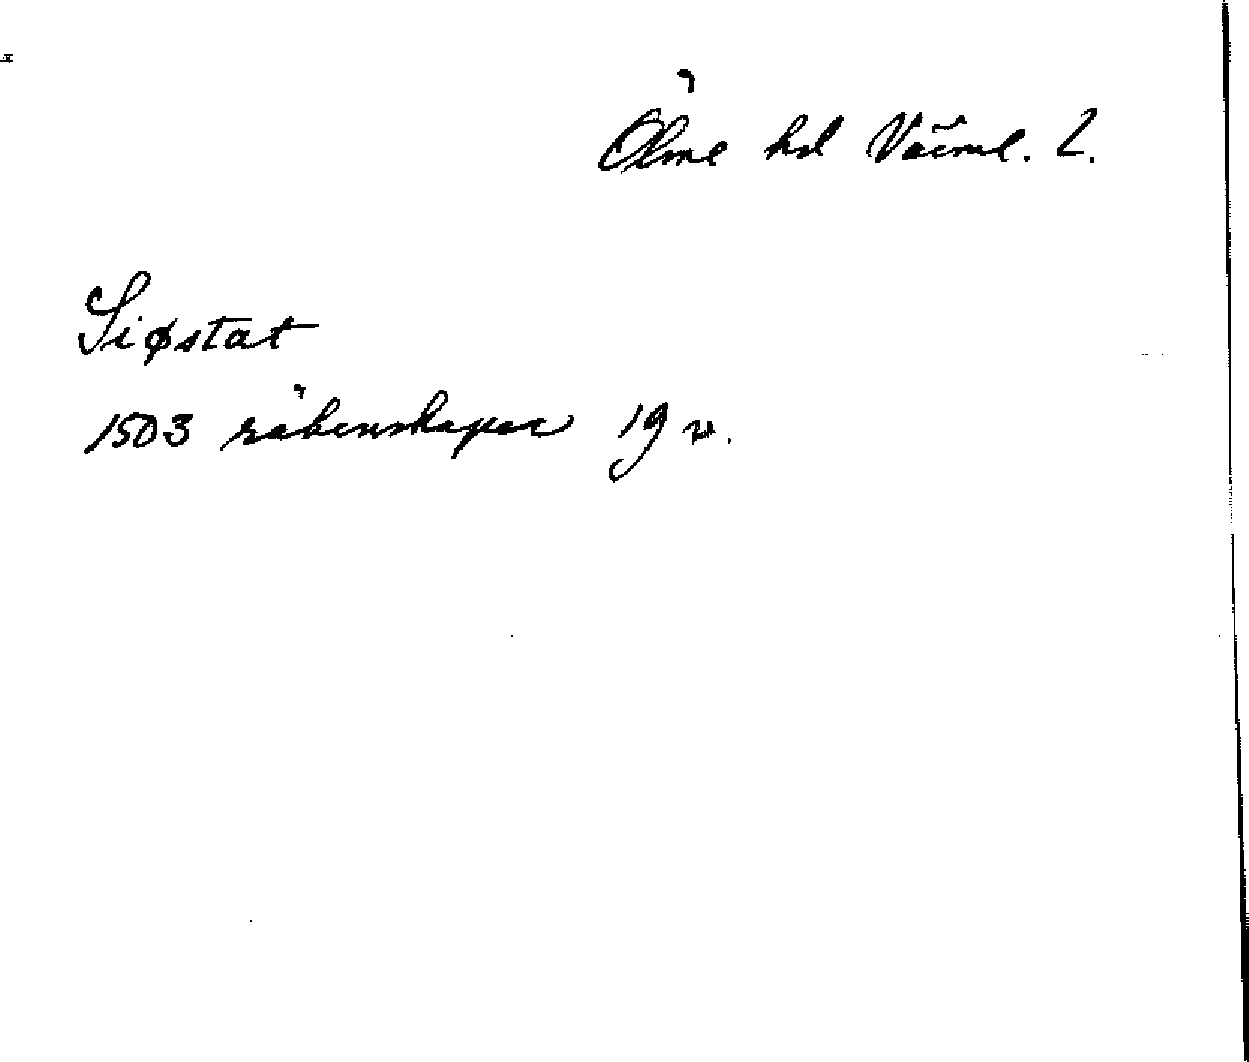 Ölme hd Värml. L.
Siøstat
1503 räkenskaper 19 v.